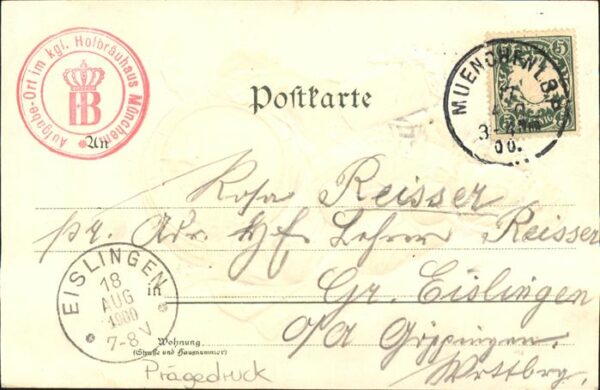 Aufgabe-Ort im kgl. Hofbräuhaus München
HB
Postkarte
5
MUENCHEN I.B.B.
00.
An
Rosa Reisser
pr. Adr. Hf. Lehrer Reisser
in
Gr. Eislingen
O/A Göppingen.
Wrttbrg.
EISLINGEN
18
AUG
1900
7-8 V
Wohnung
(Straße und Hausnummer)
Prägedruck